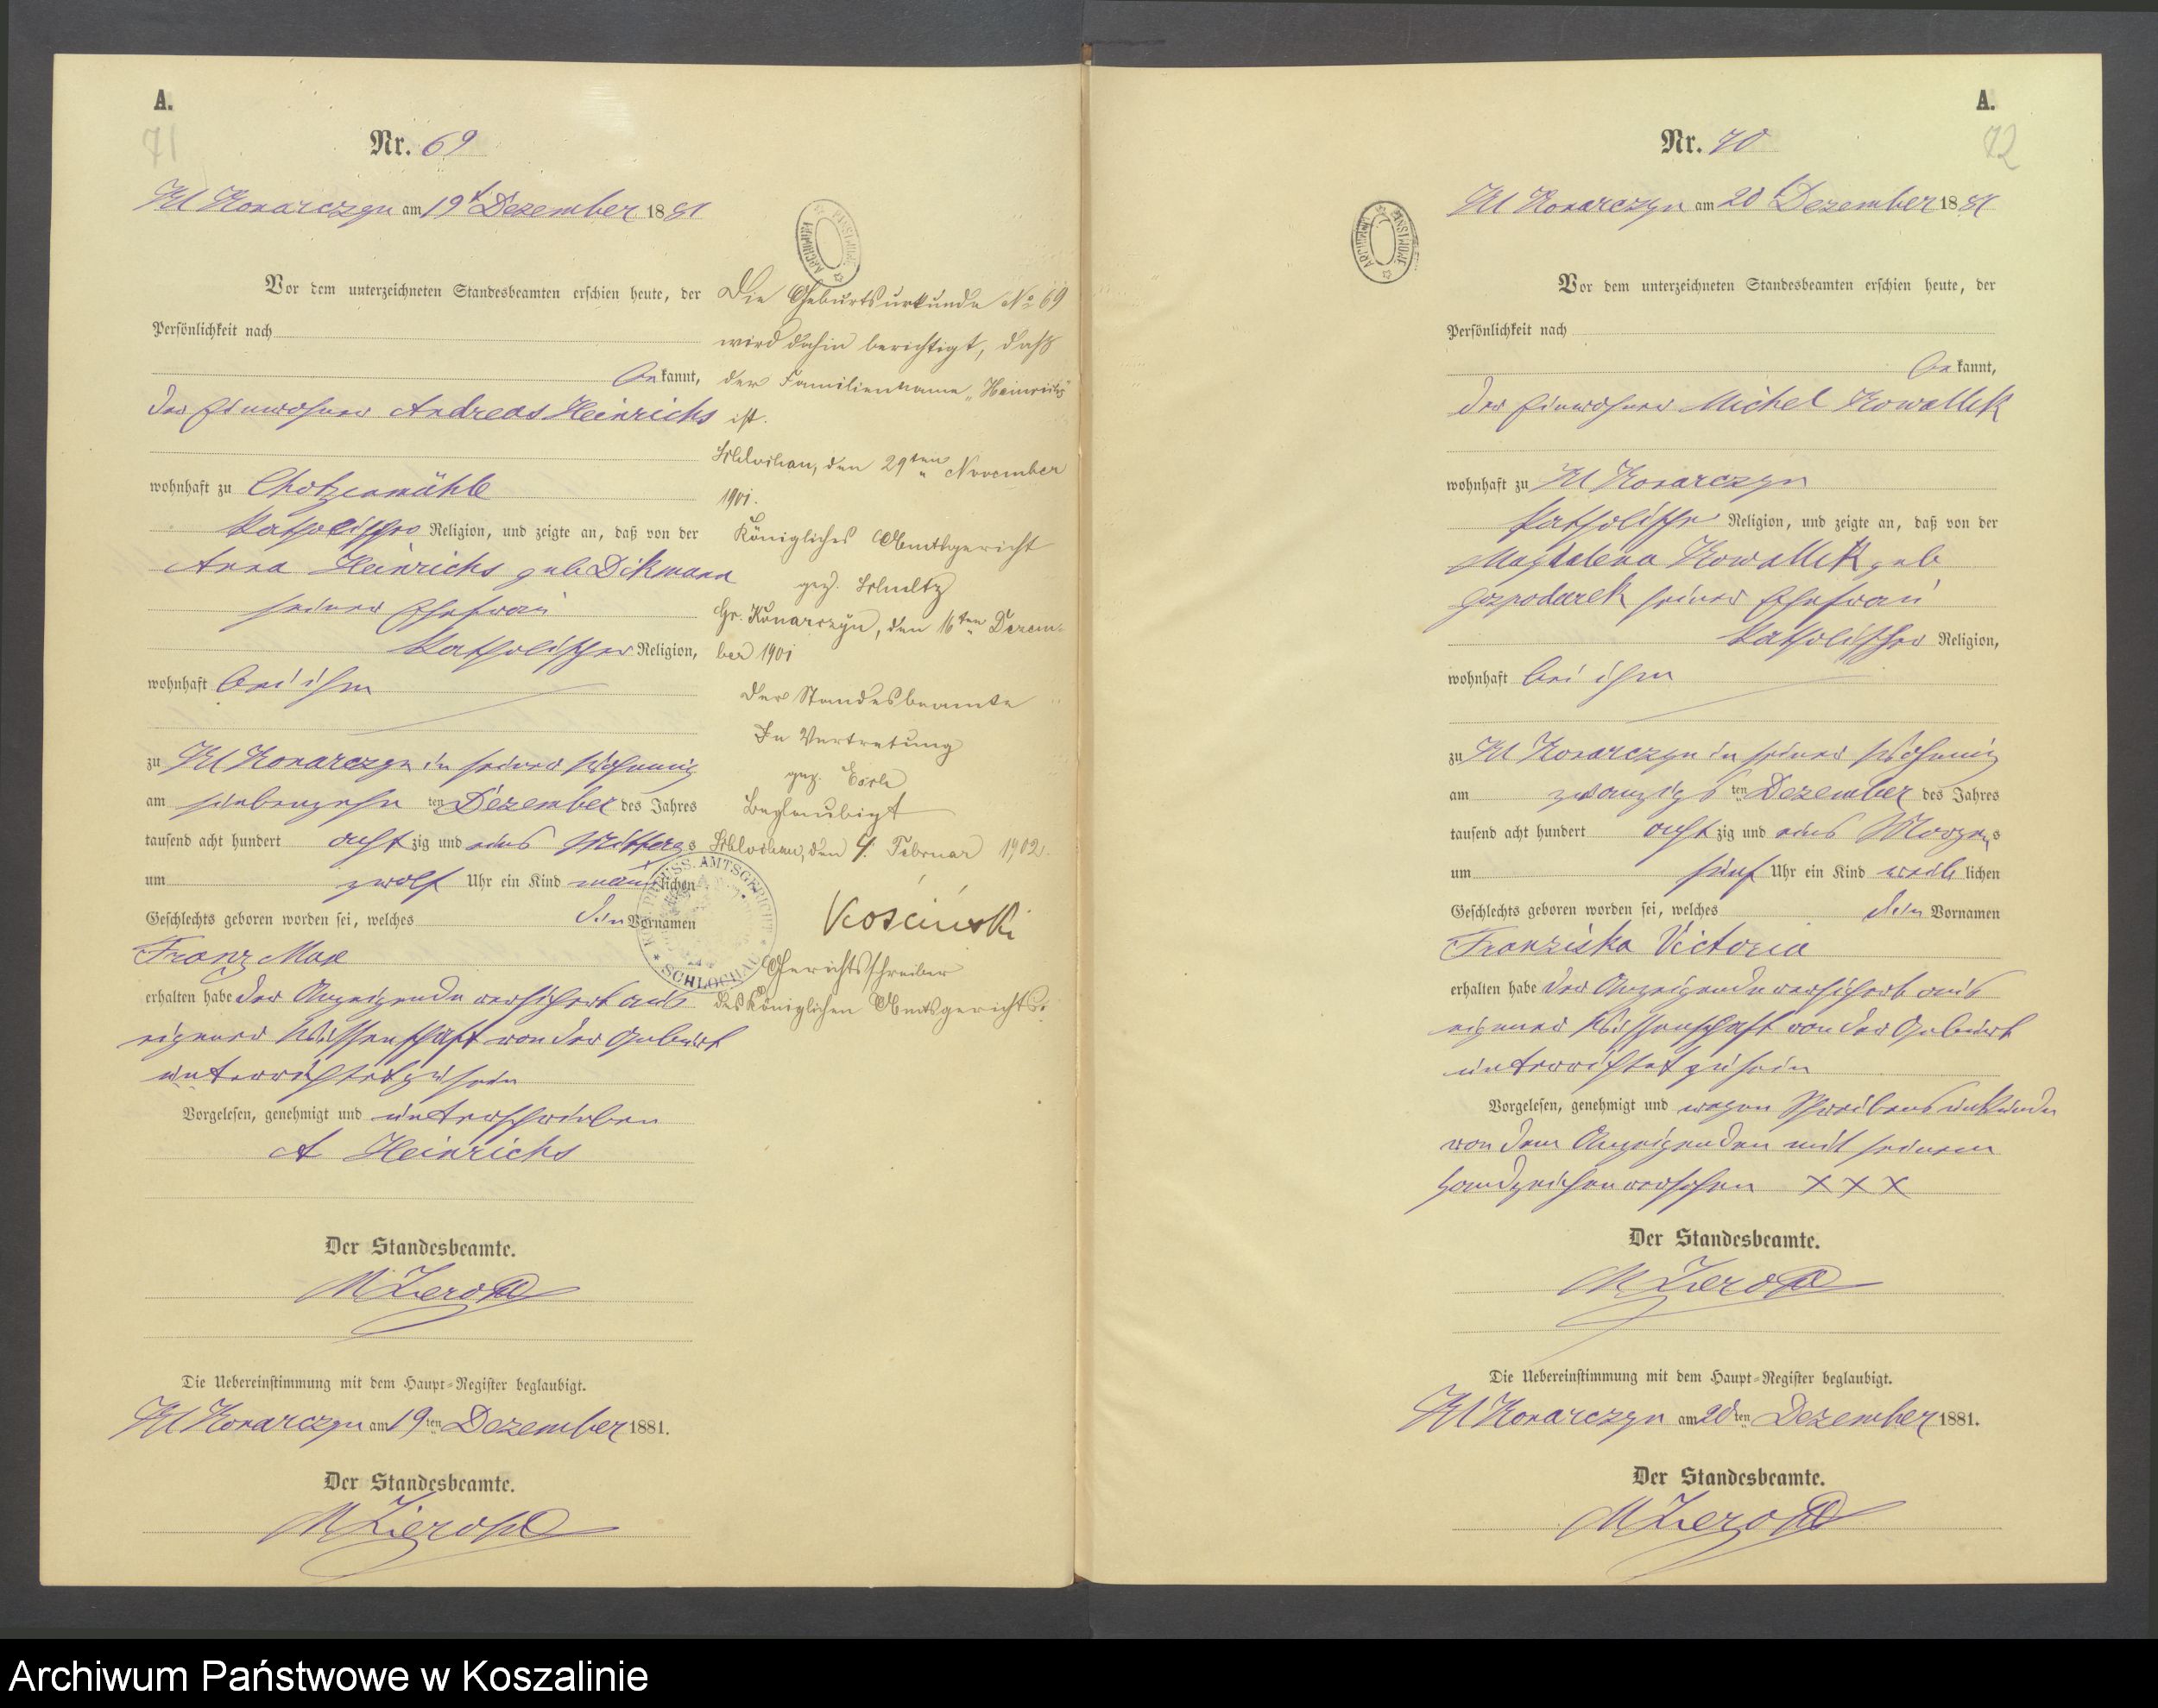 A.
71
Nr. 69
Kl Konarczyn am 19t Dezember 1881
Vor dem unterzeichneten Standesbeamten erschien heute, der
Persönlichkeit nach
bekannt,
der Einwohner Andreas Heinrichs
wohnhaft zu Chotzenmühle
katholischer Religion, und zeigte an, daß von der
Anna Heinrichs geb Dikmann
seiner Ehefrau
katholischer Religion,
wohnhaft bei ihm
zu Kl Konarczyn in seiner Wohnung
am siebenzehnten Dezember des Jahres
tausend acht hundert achtzig und eins Mittags
um zwölf Uhr ein Kind männlichen
Geschlechts geboren worden sei, welches den Vornamen
Franz Max
erhalten habe der Anzeigende versichert aus
eigener Wissenschaft von der Geburt
unterrichtet zu sein
Vorgelesen, genehmigt und unterschrieben
A Heinrichs
Der Standesbeamte.
Die Uebereinstimmung mit dem Haupt-Register beglaubigt.
Kl Konarczyn am 19ten Dezember 1881.
Der Standesbeamte.
ARCHIWUM PAŃSTWOWE
Die Geburtsurkunde No 69
wird dahin berichtigt, daß
der Familienname „Heinrichs"
ist.
Schlochau, den 29ten November
1901.
Königliches Amtsgericht
gez. Schultz
Gr. Konarczyn, den 16ten Dezem-
ber 1901
Der Standesbeamte
In Vertretung
gez.
Beglaubigt
Schlochau, den 4. Februar 1902.
KÖN. PREUSS. AMTSGERICHT
SCHLOCHAU
Kościński
Gerichtsschreiber
des Königlichen Amtsgerichts.
A.
72
Nr. 70
ARCHIWUM PAŃSTWOWE
Kl Konarczyn am 20t Dezember 1881
Vor dem unterzeichneten Standesbeamten erschien heute, der
Persönlichkeit nach
bekannt,
der Einwohner Michel Kowallek
wohnhaft zu Kl Konarczyn
katholischer Religion, und zeigte an, daß von der
Magdalena Kowallek geb
Gospodarek seiner Ehefrau
katholischer Religion,
wohnhaft bei ihm
zu Kl Konarczyn in seiner Wohnung
am zwanzigsten Dezember des Jahres
tausend acht hundert achtzig und eins Morgens
um fünf Uhr ein Kind weiblichen
Geschlechts geboren worden sei, welches den Vornamen
Franziska Victoria
erhalten habe der Anzeigende versichert aus
eigener Wissenschaft von der Geburt
unterrichtet zu sein
Vorgelesen, genehmigt und wegen Schreibensunkunde
von dem Anzeigenden mit seinem
Handzeichen versehen X X X
Der Standesbeamte.
Die Uebereinstimmung mit dem Haupt-Register beglaubigt.
Kl Konarczyn am 20ten Dezember 1881.
Der Standesbeamte.
Archiwum Państwowe w Koszalinie